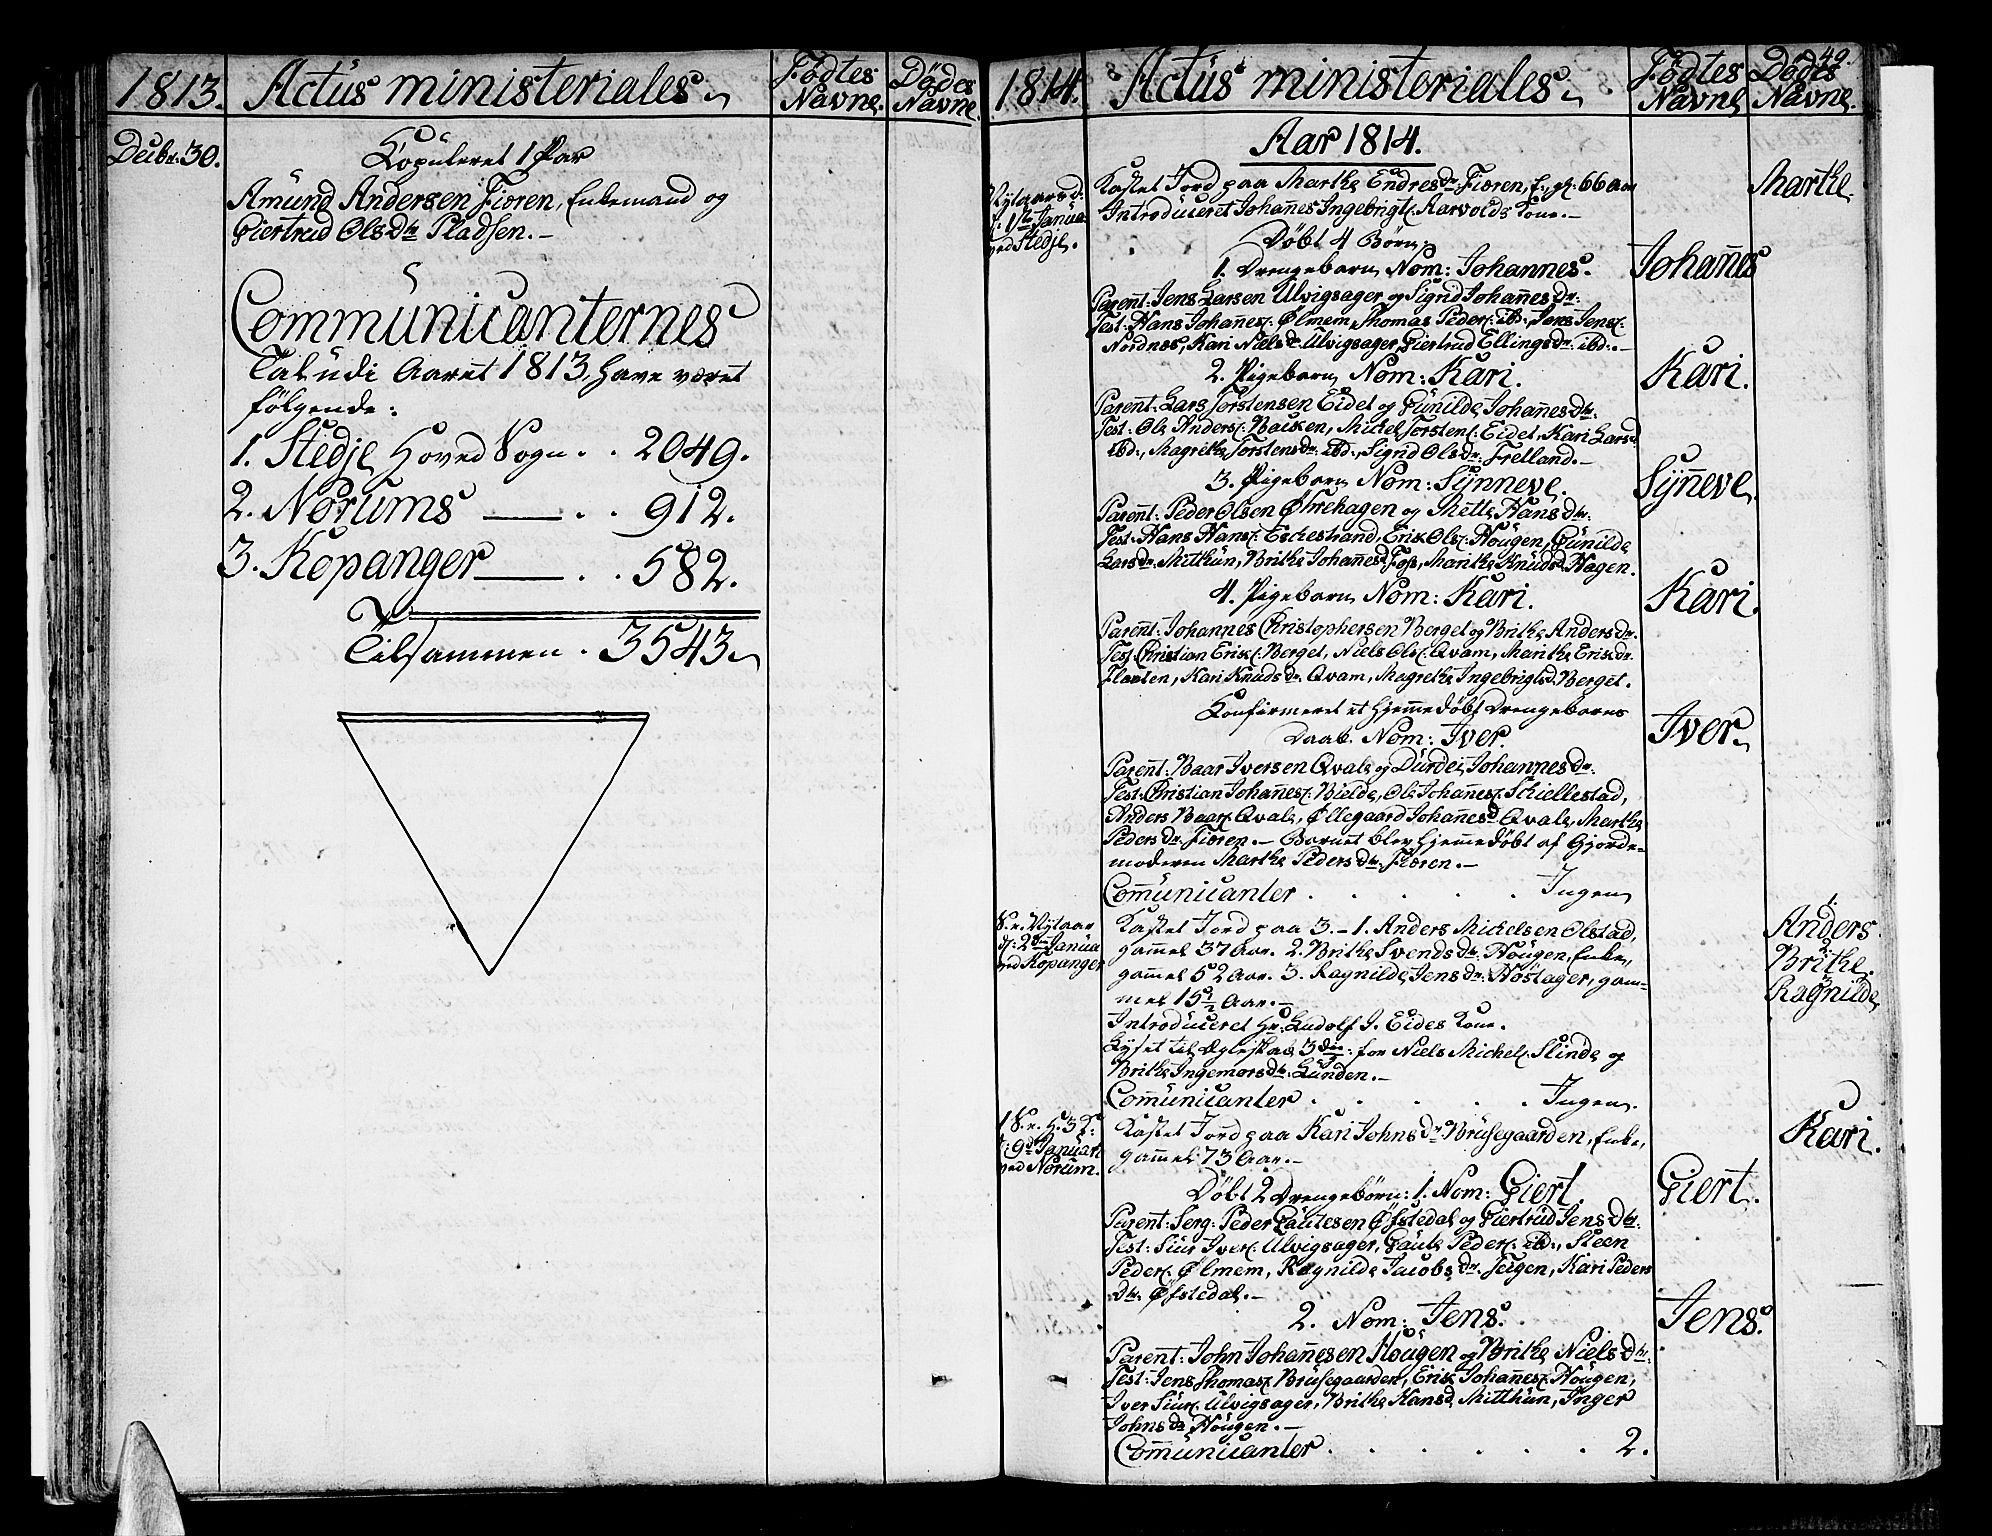 1813.
Actus ministeriales
Fødtes Navne
Dødes Navne
Decbr: 30.
Copuleret 1 Par
Amund Andersen Fiøren, Enkemand og
Giertrud Olsdtr Pladsen. –
Communicanternes
Tal udi Aaret 1813, have været
følgende:
1. Stedje Hoved Sogn . . 2049.
2. Norums — . . 912.
3. Kopanger — . . 582.
Tilsammen . 3543
1814.
Actus ministeriales
Fødtes Navne
Dødes Navne
49.
Aar 1814.
Nytaarsd:
d: 1ste Janua
ved Stedje.
Kastet Jord paa Marthe Endresdr Fiøren, gl: 66 Aar
Marthe
Introduceret Johannes Ingebrigts: Aarvolds Kone. –
Døbt 4 Børn:
1. Drengebarn Nom: Johannes.
Johañes
Parent: Jens Larsen Ulvigsager og Sigrid Johañesdr:
Test: Hans Johañes: Ølmem, Thomas Peders: ibd:, Jens Jens:
Nordnæs, Kari Nielsdr Ulvigsager, Giertrud Ellingsdr: ibd: –
2. Pigebarn Nom: Kari.
Kari.
Parent: Lars Torstensen Eidet og Gunilde Johañesdtr:
Test: Ole Anders: Michel Torstens: Eidet, Kari Larsd
ibd:, Magrethe Torstensdr: ibd:, Sigrid Olsdr: Frelland. –
3. Pigebarn Nom: Synneve.
Syñeve.
Parent: Peder Olsen Øfrehagen og Mette Hansdr:
Test: Hans Hans: Eschestrand, Erik Ols: Hougen, Gunilde
Larsdr: Mitthun, Brithe Johañesd Foss, Marithe Knudsd Hagen.
4. Pigebarn Nom: Kari.
Kari.
Parent: Johannes Christophersen Berget og Brithe Andersdr.
Test: Christian Eriks: Berget, Niels Ols: Qvam, Marithe Eriksdr.
Flaaten, Kari Knudsdr. Qvam, Magrethe Ingebrigtsd Berget.
Confirmeret et hiemmedøbt Drengebarns
Daab. Nom: Iver.
Iver
Parent: Baar Iversen Qvale og Durdei Johannesdr:
Test: Christian Johañes: Bielde, Ole Johañes: Skiellestad,
Anders Baars: Qvale, Øllegaard Johañesd Qvale, Marthe
Pedersdr Fiøren. – Barnet blev hiemmedøbt af Gjorde-
moderen Marthe Pedersdtr: Fiøren. –
Comunicanter . . . . . Ingen
S. e. Nytaar
d: 2den Janua
ved Kopanger
Kastet Jord paa 3. – 1. Anders Michelsen Olstad,
1. Anders
gammel 37 Aar. 2. Brithe Svendsdr: Hougen, Enke,
2. Brithe
gammel 52 Aar. 3. Ragnilde Jensdr: Høstager, gam-
3. Ragnilde
mel 15½ Aar. –
Introduceret Hr: Ludolf J. Eides Kone.
Lyset til Ægteskab 3die: for Niels Michels: Slinde og
Brithe Ingemorsdtr: Lunden. –
Comunicanter . . . . . Ingen.
1 S. e. H. 3 K:
d: 9de Januari
ved Norum.
Kastet Jord paa Kari Johnsdr Brusegaarden, Enke,
Kari.
gammel 73 Aar. –
Døbt 2 Drengebørn: 1. Nom: Giert.
Giert.
Parent: Serg: Peder Gautesen Øfstedal og Giertrud Jensdtr:
Test: Siur Ivers: Ulvigsager, Gaute Peders: ibd:, Steen
Peders: Ølmem, Ragnilde Jacobsdr: Teigen, Kari Peders
dtr: Øfstedal. –
2. Nom: Jens.
Jens.
Parent: John Johañesen Hougen og Brithe Nielsdtr:
Test: Jens Thomas: Brusegaarden, Erik Johañes: Hougen,
Iver Siurs: Ulvigsager, Brithe Hansd Mitthun, Inger
Johnsdr Hougen. –
Comunicanter . . . . . 2.